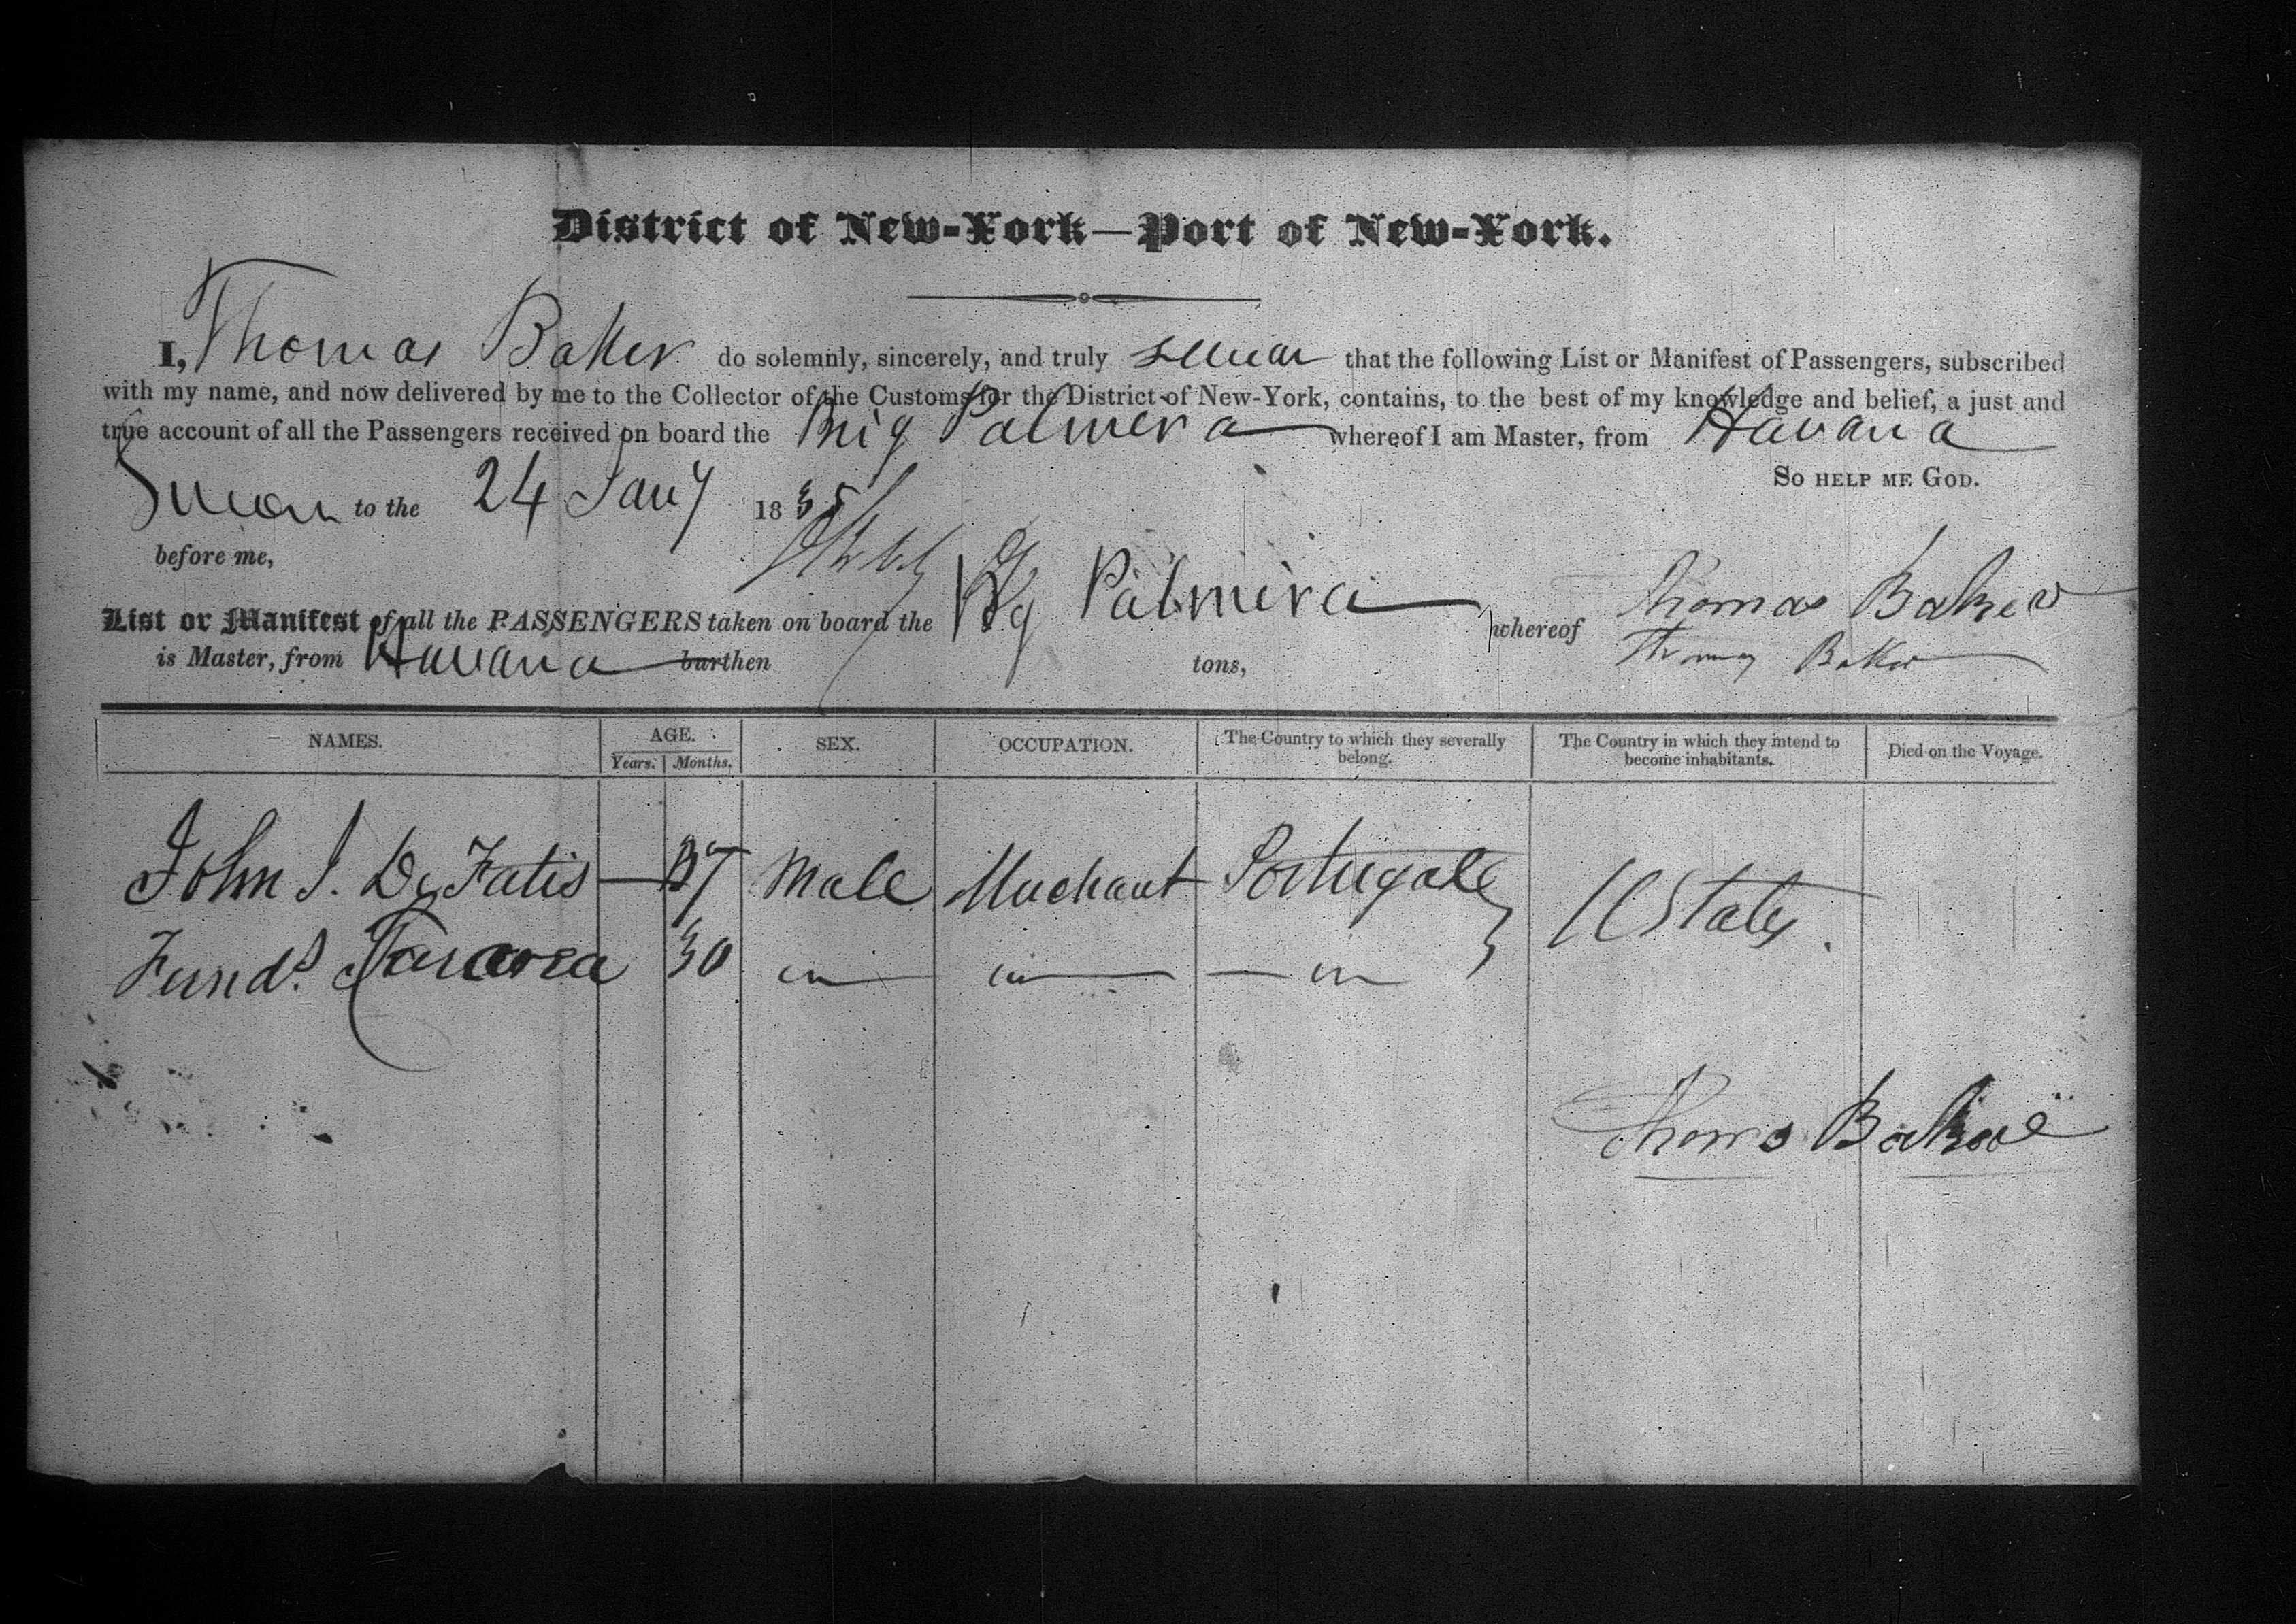 District of New-York—Port of New-York.
I, Thomas Baker do solemnly, sincerely, and truly swear that the following List or Manifest of Passengers, subscribed
with my name, and now delivered by me to the Collector of the Customs for the District of New-York, contains, to the best of my knowledge and belief, a just and
true account of all the Passengers received on board the Brig Palmera whereof I am Master, from Havana
So HELP ME GOD.
Sworn to the 24 Jany 1835
before me,
List or Manifest of all the PASSENGERS taken on board the Bg Palmira whereof Thomas Baker
is Master, from Havana burthen tons, Thomas Baker
NAMES. AGE. SEX. OCCUPATION. The Country to which they severally belong. The Country in which they intend to become inhabitants. Died on the Voyage.
Years. Months.
John J. De Fatis — 37 Male Merchant Portugale UStates.
30
Thomas Baker